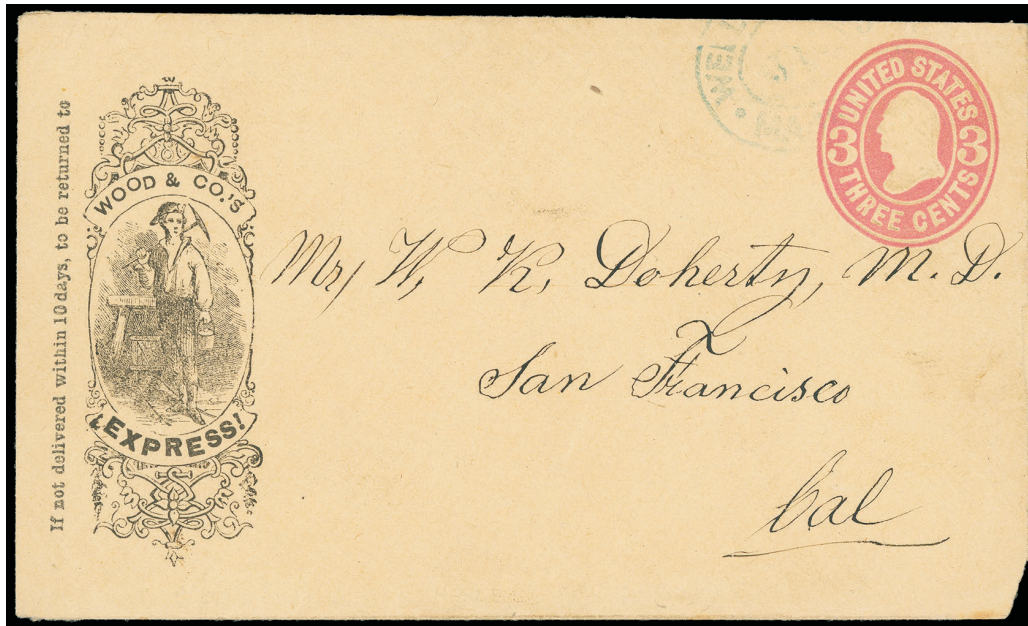 If not delivered within 10 days, to be returned to
WOOD & CO.'S
¡EXPRESS!
UNITED STATES
3 3
THREE CENTS
Mr, W, K, Doherty, M. D.
San Francisco
Cal